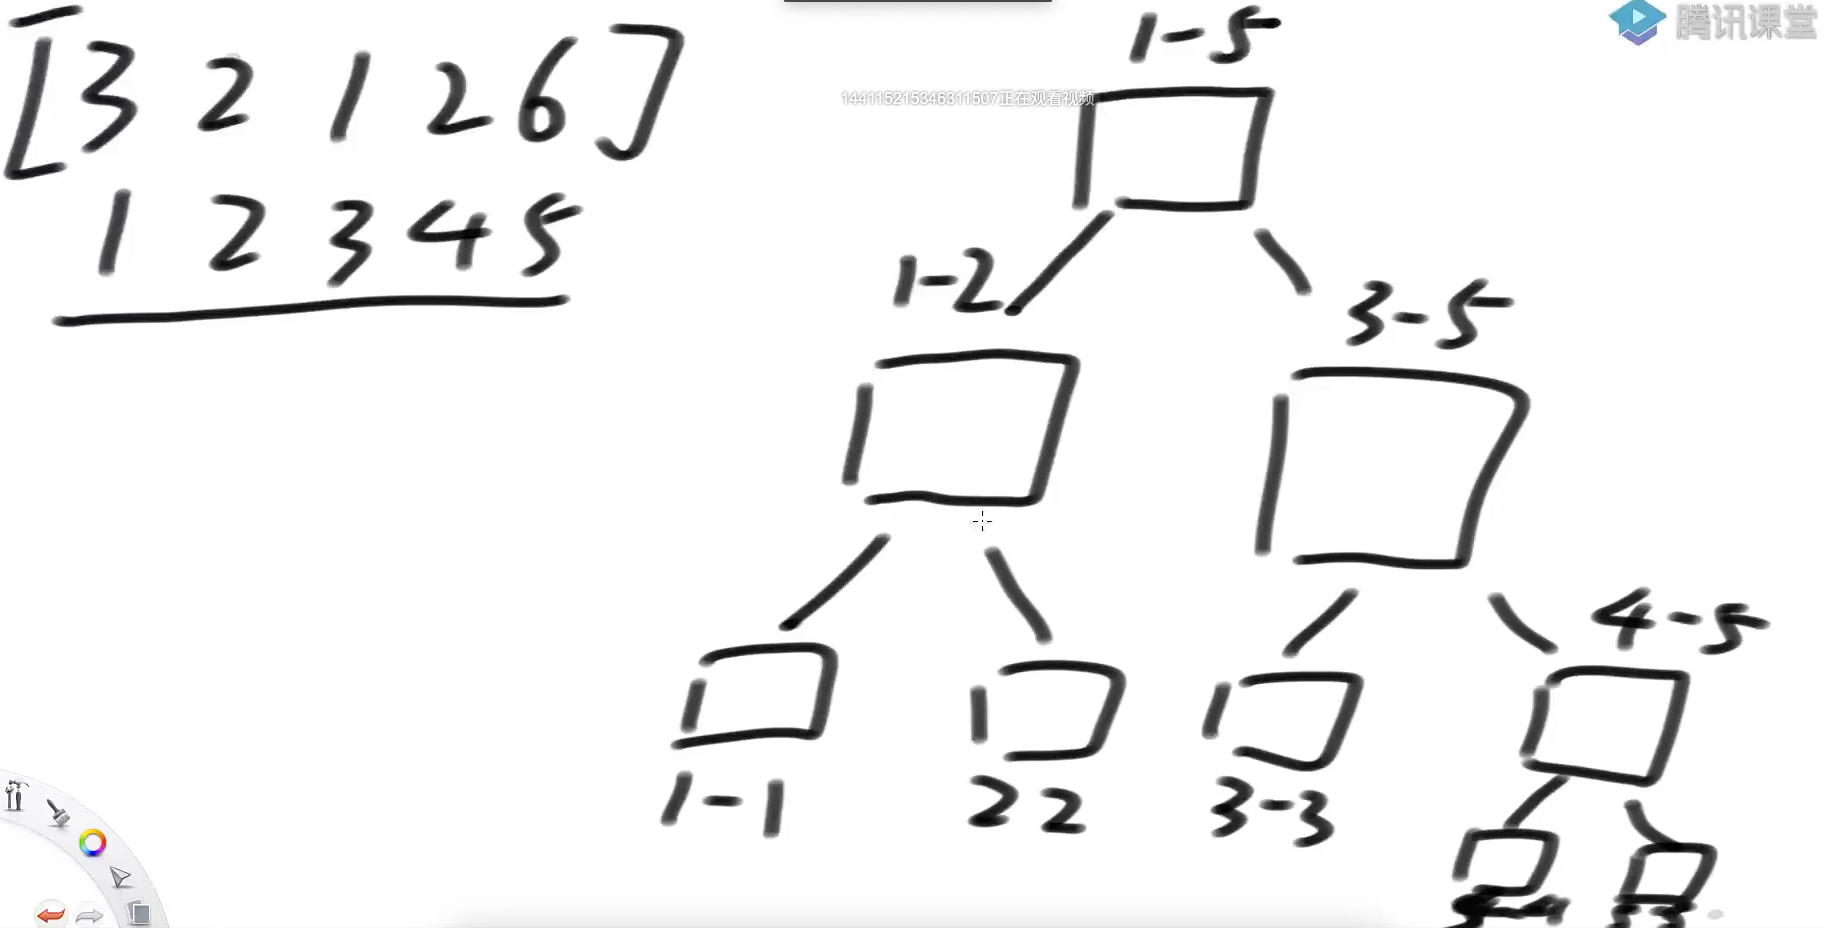 [3 2 1 2 6]
1 2 3 4 5
1-5
腾讯课堂
144115215346311507正在观看视频
1-2
3-5
4-5
1-1
22
3-3